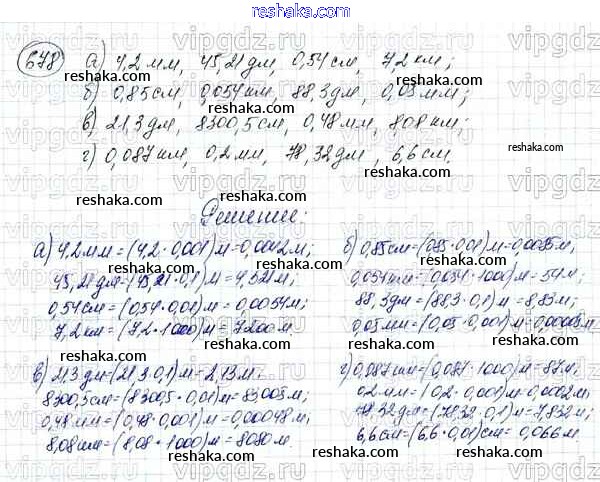 reshaka.com
678 а) 4,2 мм, 45,21 дм, 0,54 см, 7,2 км;
б) 0,85 см, 0,054 км, 88,3 дм, 0,03 мм;
в) 21,3 дм, 8300,5 см, 0,48 мм, 8,08 км;
г) 0,087 км, 0,2 мм, 78,32 дм, 6,6 см.
Решение:
а) 4,2 мм = (4,2 · 0,001) м = 0,0042 м;
45,21 дм = (45,21 · 0,1) м = 4,521 м;
0,54 см = (0,54 · 0,01) м = 0,0054 м;
7,2 км = (7,2 · 1000) м = 7200 м.
б) 0,85 см = (0,85 · 0,01) м = 0,0085 м;
0,054 км = (0,054 · 1000) м = 54 м;
88,3 дм = (88,3 · 0,1) м = 8,83 м;
0,03 мм = (0,03 · 0,001) м = 0,00003 м.
в) 21,3 дм = (21,3 · 0,1) м = 2,13 м;
8300,5 см = (8300,5 · 0,01) м = 83,005 м;
0,48 мм = (0,48 · 0,001) м = 0,00048 м;
8,08 км = (8,08 · 1000) м = 8080 м
г) 0,087 км = (0,087 · 1000) м = 87 м;
0,2 мм = (0,2 · 0,001) м = 0,0002 м;
78,32 дм = (78,32 · 0,1) м = 7,832 м;
6,6 см = (6,6 · 0,01) см = 0,066 м.
vipgdz.ru